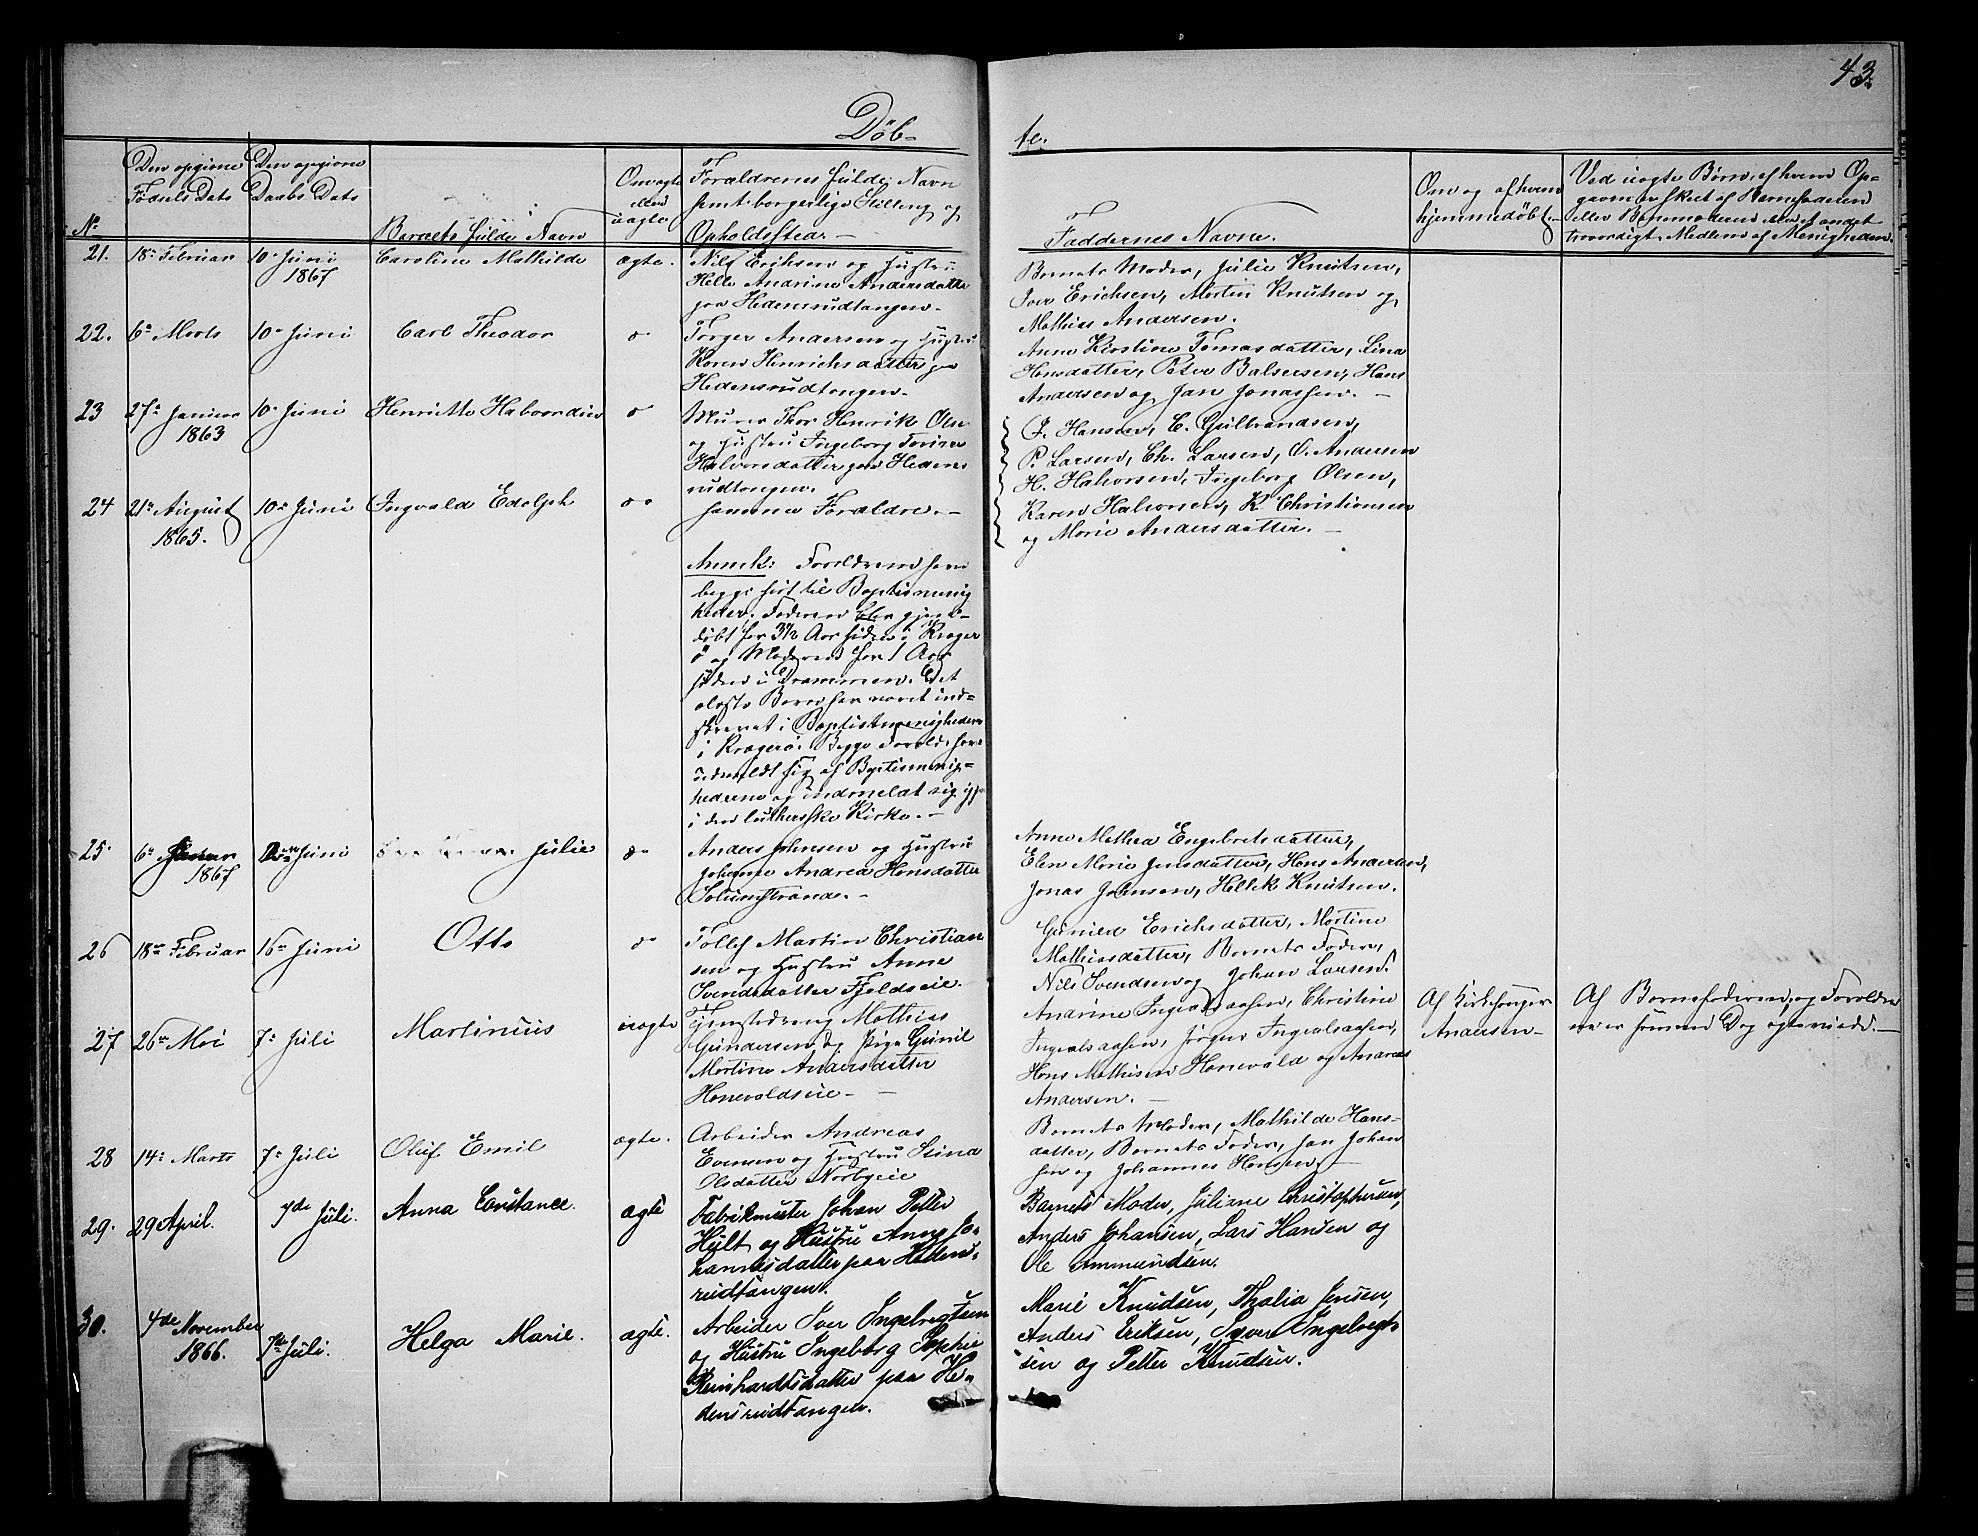 43.
Døb-
te.
No
Den opgivne
Fødsels Dato
Den opgivne
Daabs Dato
Barnets fulde Navn
Om ægte
eller
uægte
Forældrenes fulde Navn
samt borgerlige Stilling og
Opholdsstad. —
Faddernes Navne.
Om og af hvem
hjemmedøbt.
Ved uægte Børn, af hvem Op-
gaven er skeet af Barnefaderen
eller Barnemoderen eller et andet
troværdigt Medlem af Menigheden.
21. 18de Februar 10de Juni
1867
Caroline Mathilde ægte.
Nils Eriksen og Hustru
Helle Andrine Andersdatter
paa Hedensrudtangen.
Barnets Moder, Julie Knutsen,
Iver Erichsen, Martin Knutsen og
Mathias Andersen.
22. 6te Marts 10de Juni Carl Theodor do
Torger Andersen og Hustru
Karen Henrichsdatter paa
Hedensrudtangen.
Anne Kirstine Tomasdatter, Lina
Hansdatter, Peter Balsersen, Hans
Andersen og Jan Jonassen. —
23 27de Januar
1863
10de Juni Henriette do
Murer Thor Henrik Olsen
og Hustru Ingeborg Torine
Halvorsdatter paa Hedens
rudtangen.
J. Hansen, E. Gulbrandsen,
P. Larsen, Ch. Larsen, O. Andersen
H. Halvorsen, Ingeborg Olsen,
Karen Halvorsen, K. Christiansen
og Marie Andersdatter. —
24 21de August
1865.
10de Juni Ingvald Edolph do
samme Forældre. —
Anmk: Forældrene have
begge hørt til Baptismenig
heden, Faderen blev gjen-
døbt for 3½ Aar siden i Krager
ø og Moderen for 1 Aar
siden i Drammen. Det
ældste Barn har været ind-
skrevet i Baptistmenigheden
i Kragerø. Begge Foræld. have
udmeldt sig af Baptismenig-
hederne og indmeldt sig igjen
i den lutherske Kirke. —
25. 6te Januar
1867
Juni
Julie do
Anders Johnsen og Hustru
Johanne Andrea Hansdatter
Solumstrand. —
Anne Mathea Engebretsdatter,
Elen Marie Jensdatter, Hans Andersen,
Jonas Johnsen, Hellek Knutsen.
26 18de Februar 16de Juni Otto do
Tollef Martin Christian
sen og Hustru Anne
Svendsdatter Fjeldseie.
Gunild Erichsdatter, Martine
Mathiasdatter, Barnets Fader,
Nils Svendsen og Johan Larsen.
27 26de Mai 7de Juli Martinius uægte
Tjenstedreng Mathias
Gundersen og Pige Gunil
Martine Andersdatter
Honevoldseie —
Andrine Ingvalsaasen, Christine
Ingvalsaasen, Jørgen Ingvalsaasen,
Hans Mathisen Honevald og Andreas
Andersen. —
Af Kirkesanger
Andersen —
Af Barnefaderen, og Forældre
ne er samme Dag ægteviede. —
28 14de Marts 7de Juli Oluf Emil ægte.
Arbeider Andreas
Evensen og Hustru Stina
Olsdatter Norbyeie
Barnets Moder, Mathilde Hans-
datter, Barnets Fader, Jan Johan
sen og Johannes Hansen. —
29. 29 April. 7de Juli. Anna Constance. ægte
Fabrikmester Johan Petter
Hult og Hustru Anne Jo-
hannesdatter paa Hedens-
rudtangen.
Barnets Moder, Juliane Christophersen,
Anders Johansen, Lars Hansen og
Ole Ammundsen.
30. 4de November
1866.
7de Juli. Helga Marie. ægte.
Arbeider Iver Ingebregtsen
og Hustru Ingeborg Sophie
Reinhardtsdatter paa He-
densrudtangen.
Marie Knudsen, Thalia Jensen,
Anders Eriksen, Iver Ingebregt-
sen og Petter Knudsen.